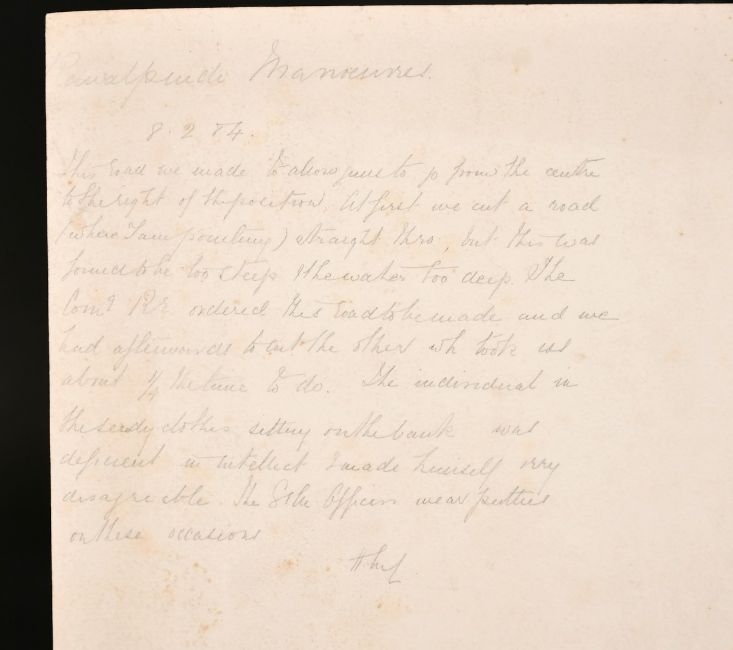 Rawalpindi Manoeuvres.
8. 2 84.
This road we made to allow guns to go from the centre
to the right of the position. At first we cut a road
(where I am pointing) straight thro', but this was
found to be too steep & the water too deep. The
Comg R.E. ordered this road to be made and we
had afterwards to cut the other wh took us
about 1/4 the time to do. The individual in
the seedy clothes sitting on the bank was
deficient in intellect & made himself very
disagreeable. The Officers wear putties
on these occasions